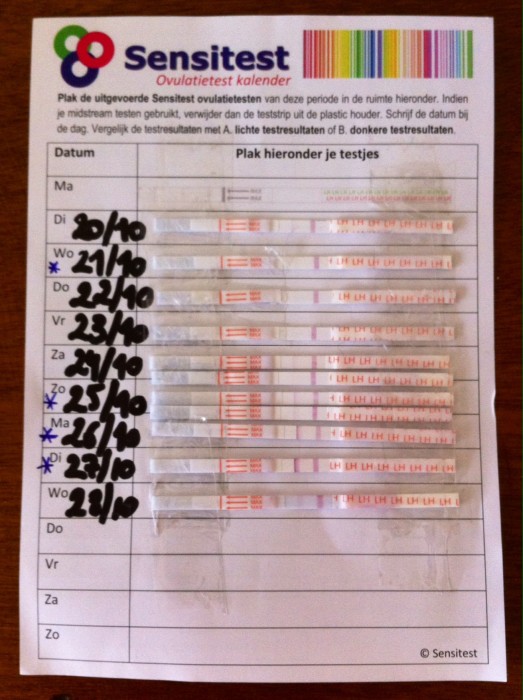 Sensitest
Ovulatietest kalender
Plak de uitgevoerde Sensitest ovulatietesten van deze periode in de ruimte hieronder. Indien
je midstream testen gebruikt, verwijder dan de teststrip uit de plastic houder. Schrijf de datum bij
de dag. Vergelijk de testresultaten met A. lichte testresultaten of B. donkere testresultaten.
Datum Plak hieronder je testjes
Ma
Di 20/10 LH LH LH LH LH LH LH
Wo * 21/10 LH LH LH LH LH LH
Do 22/10 LH LH LH LH LH LH LH
Vr 23/10 LH LH LH LH LH LH
Za 24/10 LH LH LH LH LH LH LH
LH LH LH LH LH LH LH
Zo * 25/10 LH LH LH LH LH LH
Ma * 26/10 LH LH LH LH LH LH LH
Di * 27/10 LH LH LH LH LH LH LH LH
Wo 28/10 LH LH LH LH LH LH LH
Do
Vr
Za
Zo
© Sensitest